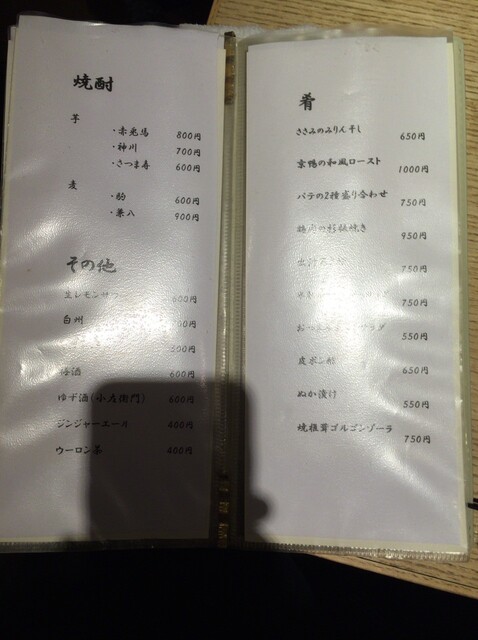 焼酎
芋
・赤兎馬 800円
・神川 700円
・さつま寿 600円
麦
・舶 600円
・兼八 900円
その他
生レモンサワー 600円
白州
500円
梅酒 600円
ゆず酒(小左衛門) 600円
ジンジャーエール 400円
ウーロン茶 400円
肴
ささみのみりん干し 650円
京鴨の和風ロースト 1000円
パテの2種盛り合わせ 750円
950円
750円
750円
550円
皮ポン酢 650円
ぬか漬け 550円
焼椎茸ゴルゴンゾーラ 750円